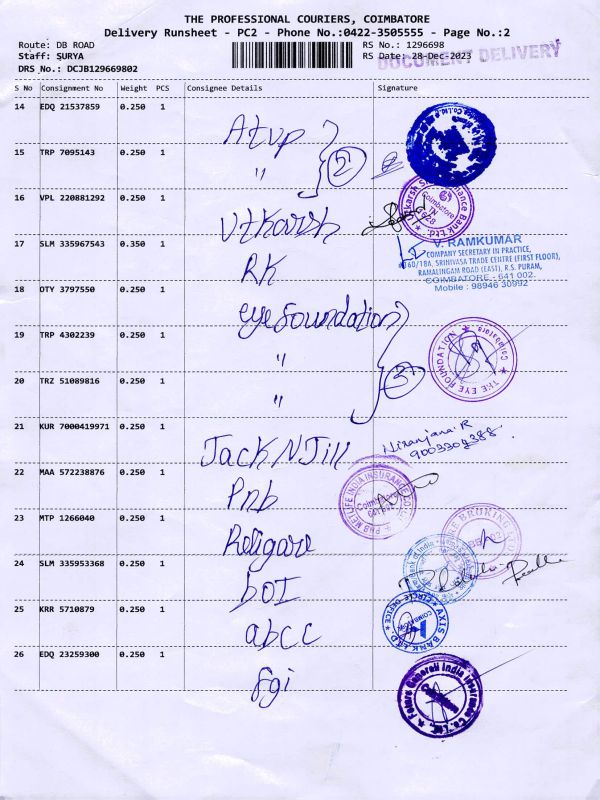 THE PROFESSIONAL COURIERS, COIMBATORE
Delivery Runsheet - PC2 - Phone No.:0422-3505555 - Page No.:2
Route: DB ROAD RS No.: 1296698
Staff: SURYA RS Date: 28-Dec-2023
DOCUMENT DELIVERY
DRS No.: DCJB129669802
S No Consignment No Weight PCS Consignee Details Signature
14 EDQ 21537859 0.250 1
Atvp
15 TRP 7095143 0.250 1
" 2
16 VPL 220881292 0.250 1
Utkarsh
Coimbatore
17 SLM 335967543 0.350 1
RK
V. RAMKUMAR
COMPANY SECRETARY IN PRACTICE,
SRINIVASA TRADE CENTRE (FIRST FLOOR),
RAMALINGAM ROAD (EAST), R.S. PURAM,
COIMBATORE - 641 002.
Mobile : 98946 30992
18 DTY 3797550 0.250 1
eye foundation
19 TRP 4302239 0.250 1
"
THE EYE FOUNDATION Coimbatore
20 TRZ 51089816 0.250 1
" 3
21 KUR 7000419971 0.250 1
Jack N Jill
Niranjana. R
9003308388.
22 MAA 572238876 0.250 1
Pnb
PNB METLIFE INDIA INSURANCE
Coimbatore
23 MTP 1266040 0.250 1
Religare
BROKING
24 SLM 335953368 0.250 1
BOI
25 KRR 5710879 0.250 1
abcc
AXIS BANK LTD CIRCLE OFFICE
26 EDQ 23259300 0.250 1
fgi
Future Generali India Insurance Co. Ltd.